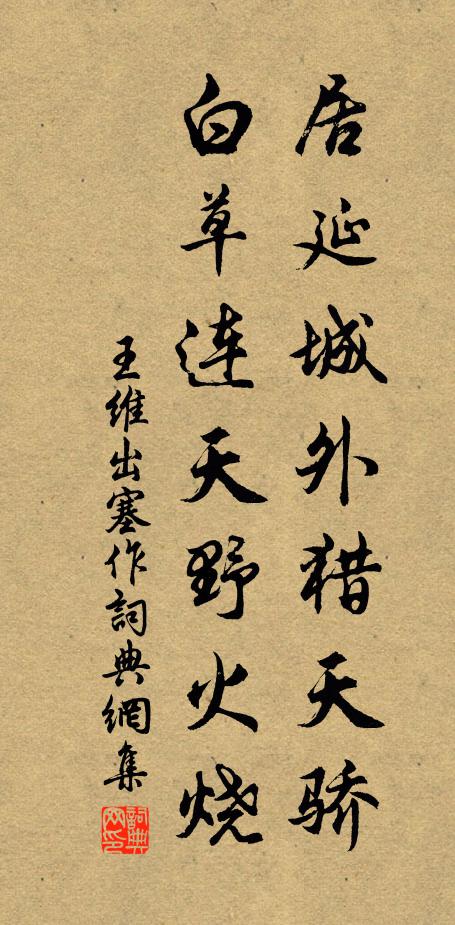 居延城外猎天骄
白草连天野火烧
王維出塞作詞典網集
詞典
网印